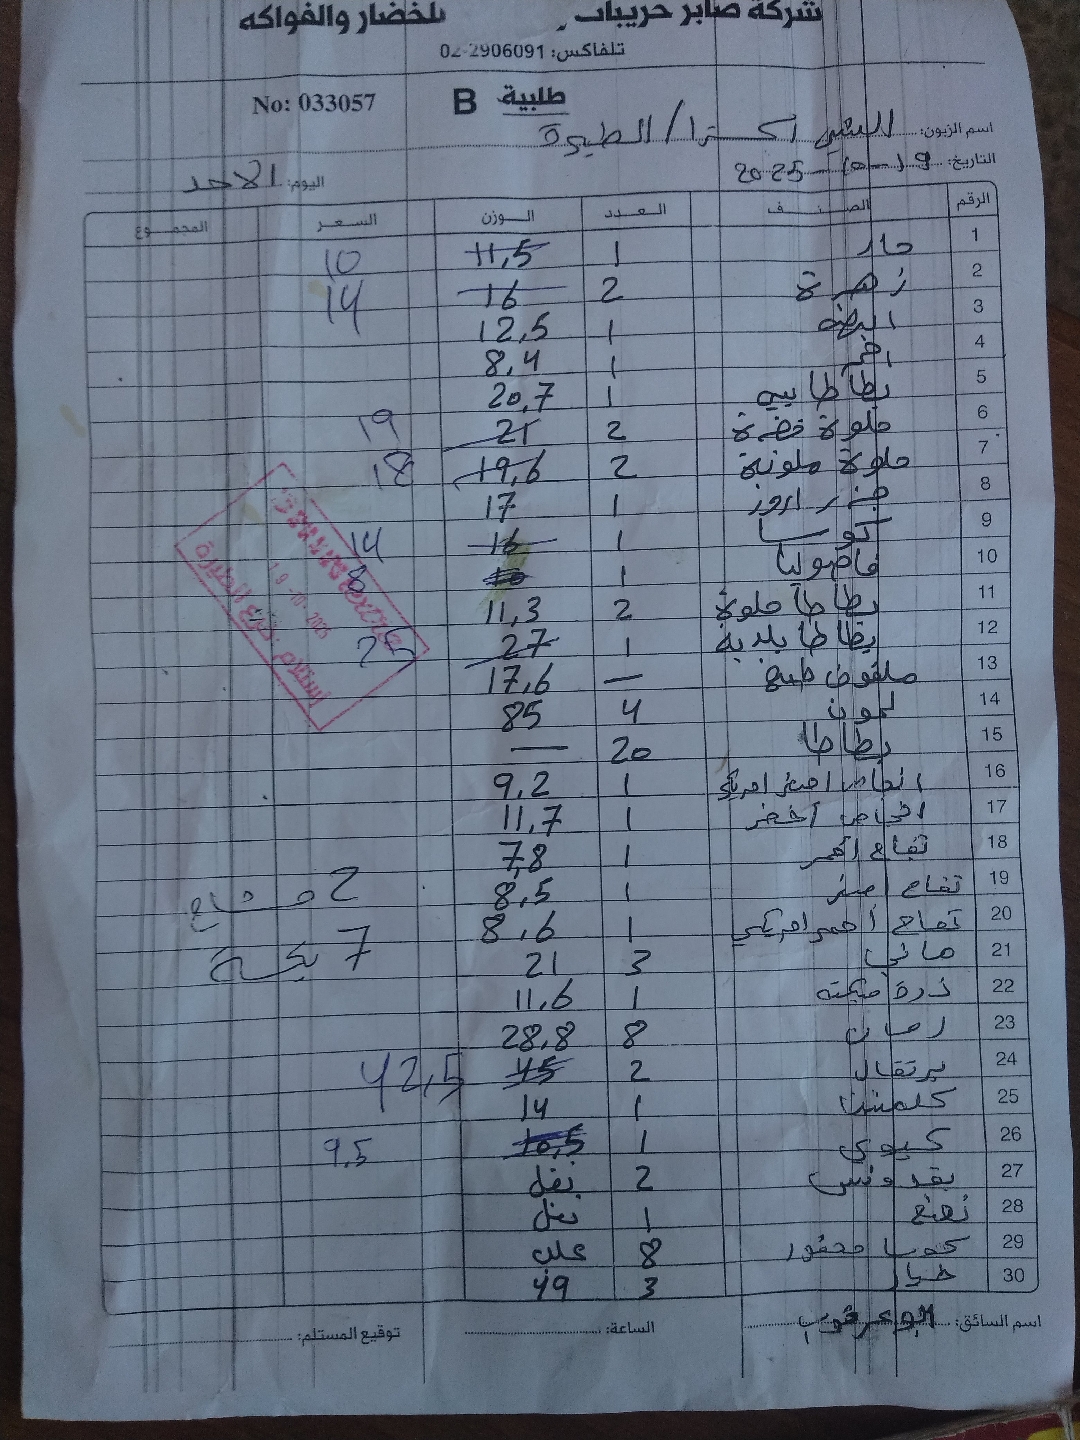 شركة صابر حريبات للخضار والفواكه
تلفاكس: 02-2906091
طلبية B No: 033057
اسم الزبون: اكسترا / الطيرة
التاريخ: 19-10-2025 اليوم: الاحد
الرقم الصنف العدد الوزن السعر المجموع
1 حار 1 11,5 10
2 زهرة 2 16 14
3 1 12,5
4 1 8,4
5 بطاطا 1 20,7
6 حلوة خضرة 2 21 19
7 حلوة ملونة 2 19,6 18
8 جزر 1 17
9 كوسا 1 16 14
10 فاصوليا 1 10 8
11 بطاطا حلوة 2 11,3
12 بطاطا بلدية 1 27 25
13 ملفوف — 17,6
14 ليمون 4 85
15 بطاطا 20 —
16 انجاص اصفر امريكي 1 9,2
17 انجاص اخضر 1 11,7
18 تفاح احمر 1 7,8
19 تفاح اصفر 1 8,5 2
20 تفاح أحمر امريكي 1 8,6 7 بكسة
21 3 21
22 ذرة 1 11,6
23 رمان 8 28,8
24 برتقال 2 45 42,5
25 كلمنتينا 1 14
26 كيوي 1 10,5 9,5
27 بقدونس 2
28 نعنع 1
29 كوسا محفور 8 علب
30 خيار 3 49
استلام فرع الطيرة
19-10-2025
اسم السائق: الساعة: توقيع المستلم: